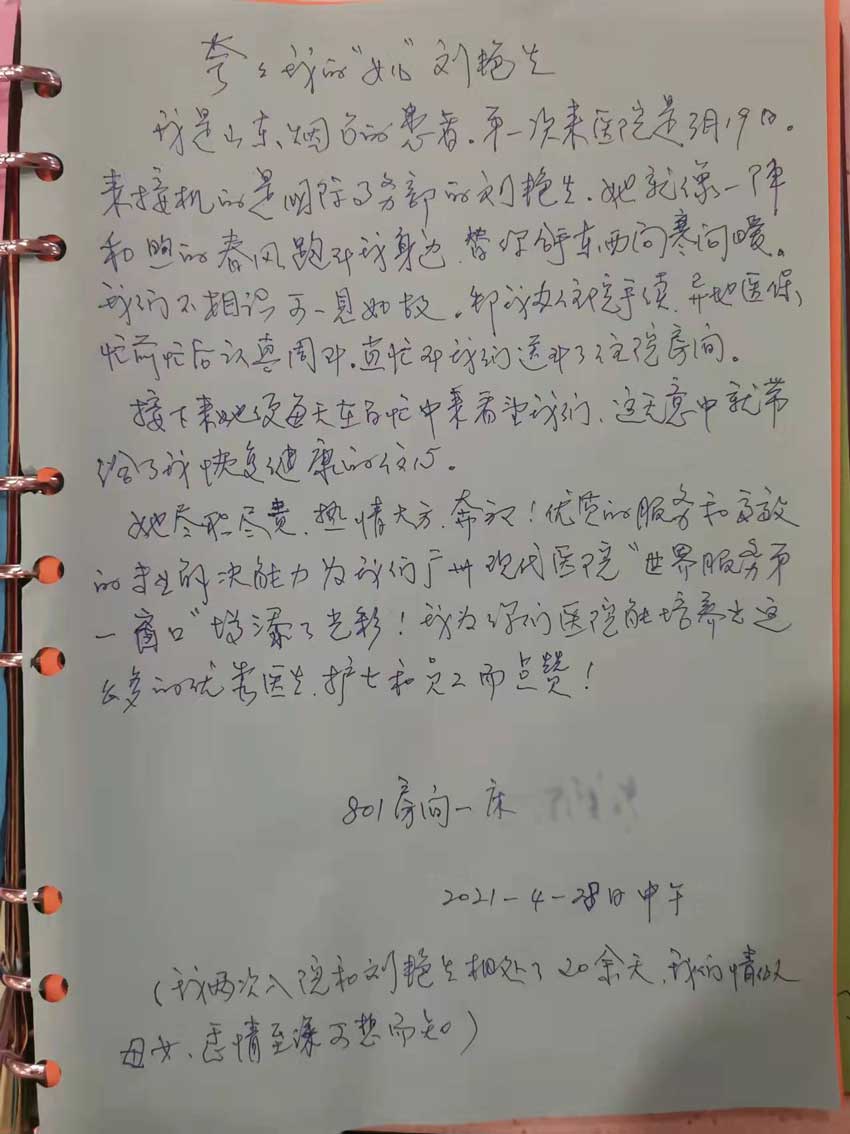 夸夸我的“女儿”刘艳生
我是山东、烟台的患者。第一次来医院是3月19日。
来接机的是国际事务部的刘艳生。她就像一阵
和煦的春风跑到我身边、替你拿东西问寒问暖。
我们不相识可一见如故。帮我办住院手续、异地医保、
忙前忙后认真周到。直忙到我们送到了住院房间。
接下来她便每天在百忙中来看望我们、这无意中就带
给了我恢复健康的信心。
她尽职尽责、热情大方、奔放！优质的服务和高效
的来解决能力为我们广州现代医院“世界服务第
一窗口”增添了光彩！我为你们医院能培养出这
么多的优秀医生、护士和员工而点赞！
801房间一床
2021-4-28日中午
（我两次入院和刘艳生相处了20余天、我们情似
母女、感情至深可想而知）